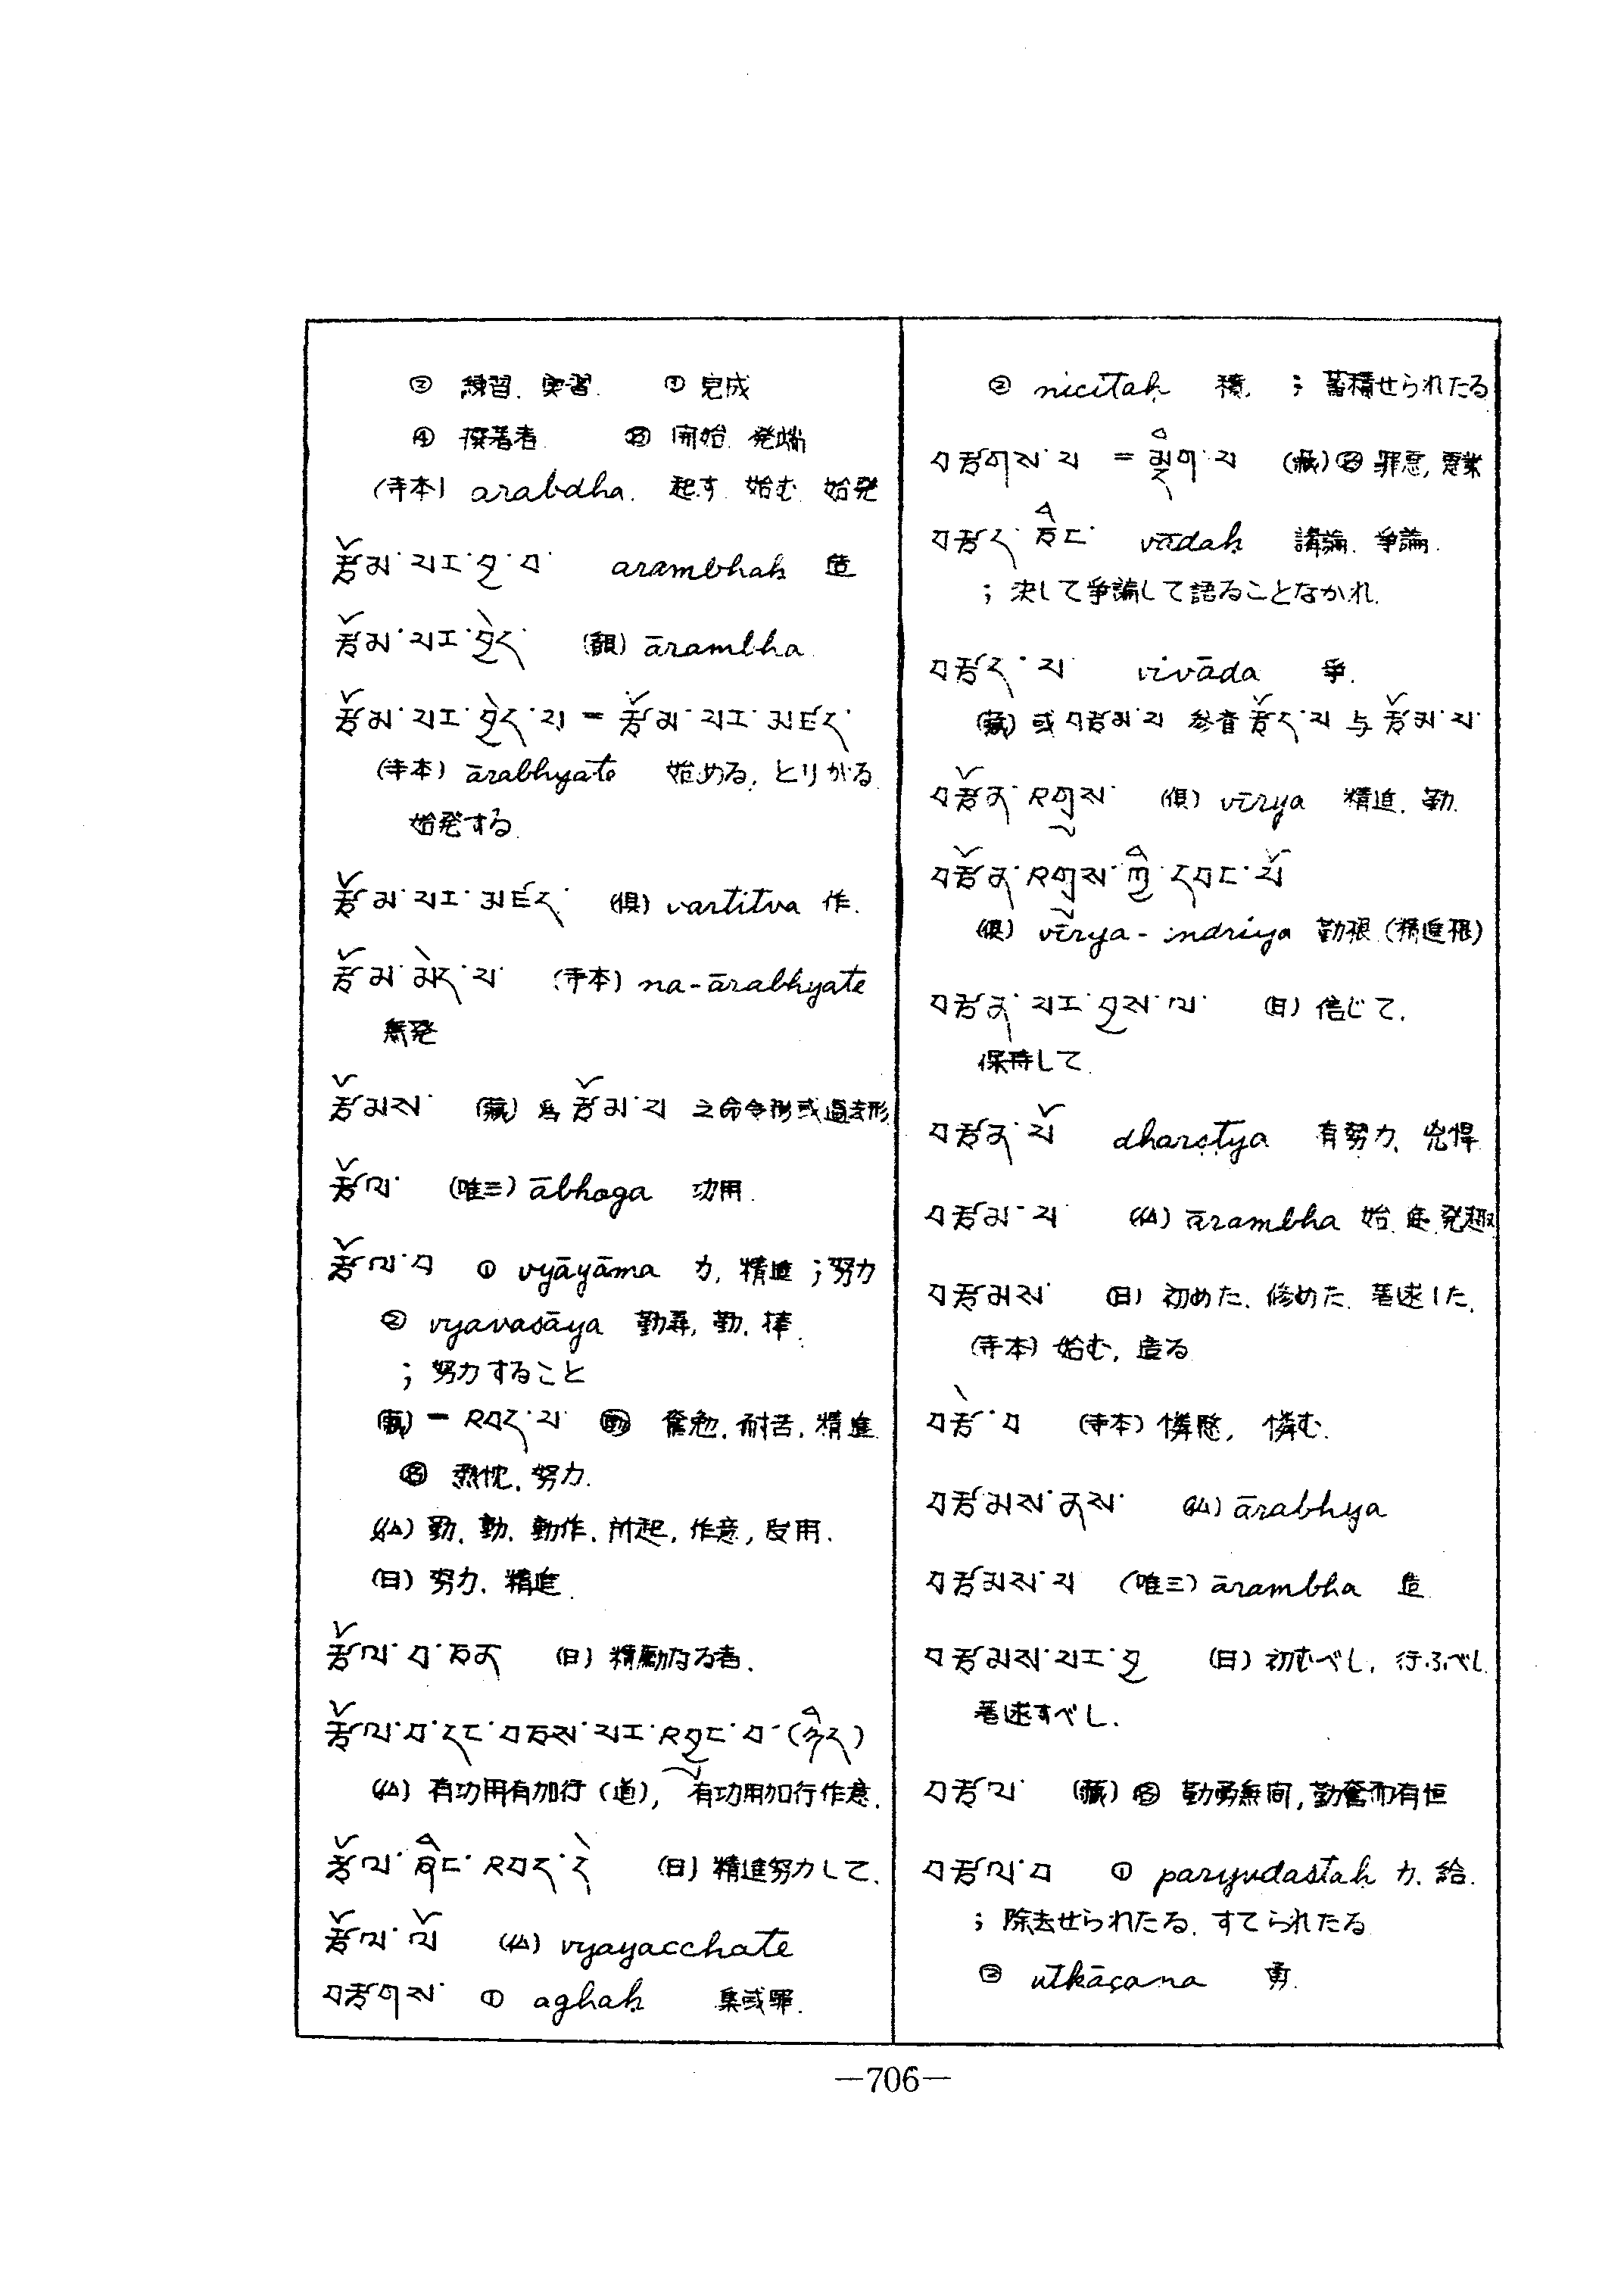 ② 練習. 実習. ③ 完成
④ 撰著者. 名 開始. 発端
(寺本) arabdha. 起す. 始む. 始発
རྩོམ་པར་བྱ་བ་ arambhaḥ 造
རྩོམ་པར་བྱེད་ (俱) ārambha.
རྩོམ་པར་བྱེད་པ = རྩོམ་པར་མཛད་
(寺本) ārabhyate 始める, とりかゝる
始発する.
རྩོམ་པར་མཛད་ (俱) vartitva 作.
རྩོམ་མེད་པ་ (寺本) na-ārabhyate
無発
རྩོམས་ (藏) 為 རྩོམ་པ 之命令形或過去形
རྩོལ་ (唯三) ābhoga 功用.
རྩོལ་བ ① vyāyāma 力, 精進 ; 努力
② vyavasāya 勤尋, 勤.
; 努力すること
(藏) = འབད་པ་ 動 奮勉, 耐苦, 精進
名 熱忱, 努力.
(仏) 勤, 勤, 動作, 所起, 作意, 受用.
(日) 努力, 精進.
རྩོལ་བ་ཅན (日) 精勤なる者.
རྩོལ་བ་དང་བཅས་པར་འབྱུང་བ་(ཉིད)
(仏) 有功用有加行 (道), 有功用加行作意.
རྩོལ་ཞིང་འབད་དེ (日) 精進努力して.
རྩོལ་ལོ (仏) vyayacchate
བརྩགས་ ① aghaḥ 集或罪.
② nicitaḥ 積. ; 蓄積せられたる
བརྩགས་པ = སྡིག་པ (藏) 名 罪悪, 悪業
བརྩད་ཅིང་ vādaḥ 講論. 争論.
; 決して争論して語ることなかれ.
བརྩད་པ་ vivāda 争.
(藏) 或 བརྩམ་པ 参看 རྩོད་པ 与 རྩོམ་པ་
བརྩོན་འགྲུས་ (俱) vīrya 精進. 勤.
བརྩོན་འགྲུས་ཀྱི་དབང་པོ
(俱) vīrya - indriya 勤根 (精進根)
བརྩན་པར་བྱས་ལ་ (日) 信じて.
保持して
བརྩན་པོ dharṣṭya 有努力, 兇悍
བརྩམ་པ་ (仏) ārambha 始. 造. 発趣
བརྩམས་ (日) 初めた. 修めた. 著述した.
(寺本) 始む, 造る
བརྩེ་བ (寺本) 憐愍, 憐む.
བརྩམས་ནས་ (仏) ārabhya
བརྩམས་པ (唯三) ārambha 造
བརྩམས་པར་བྱ (日) 初むべし, 行ふべし
著述すべし.
བརྩལ་ (藏) 名 勤勇無間, 勤奮而有恒
བརྩལ་བ ① paryudastaḥ 力. 給.
; 除去せられたる. すてられたる
② utkāçana 勇.
—706—